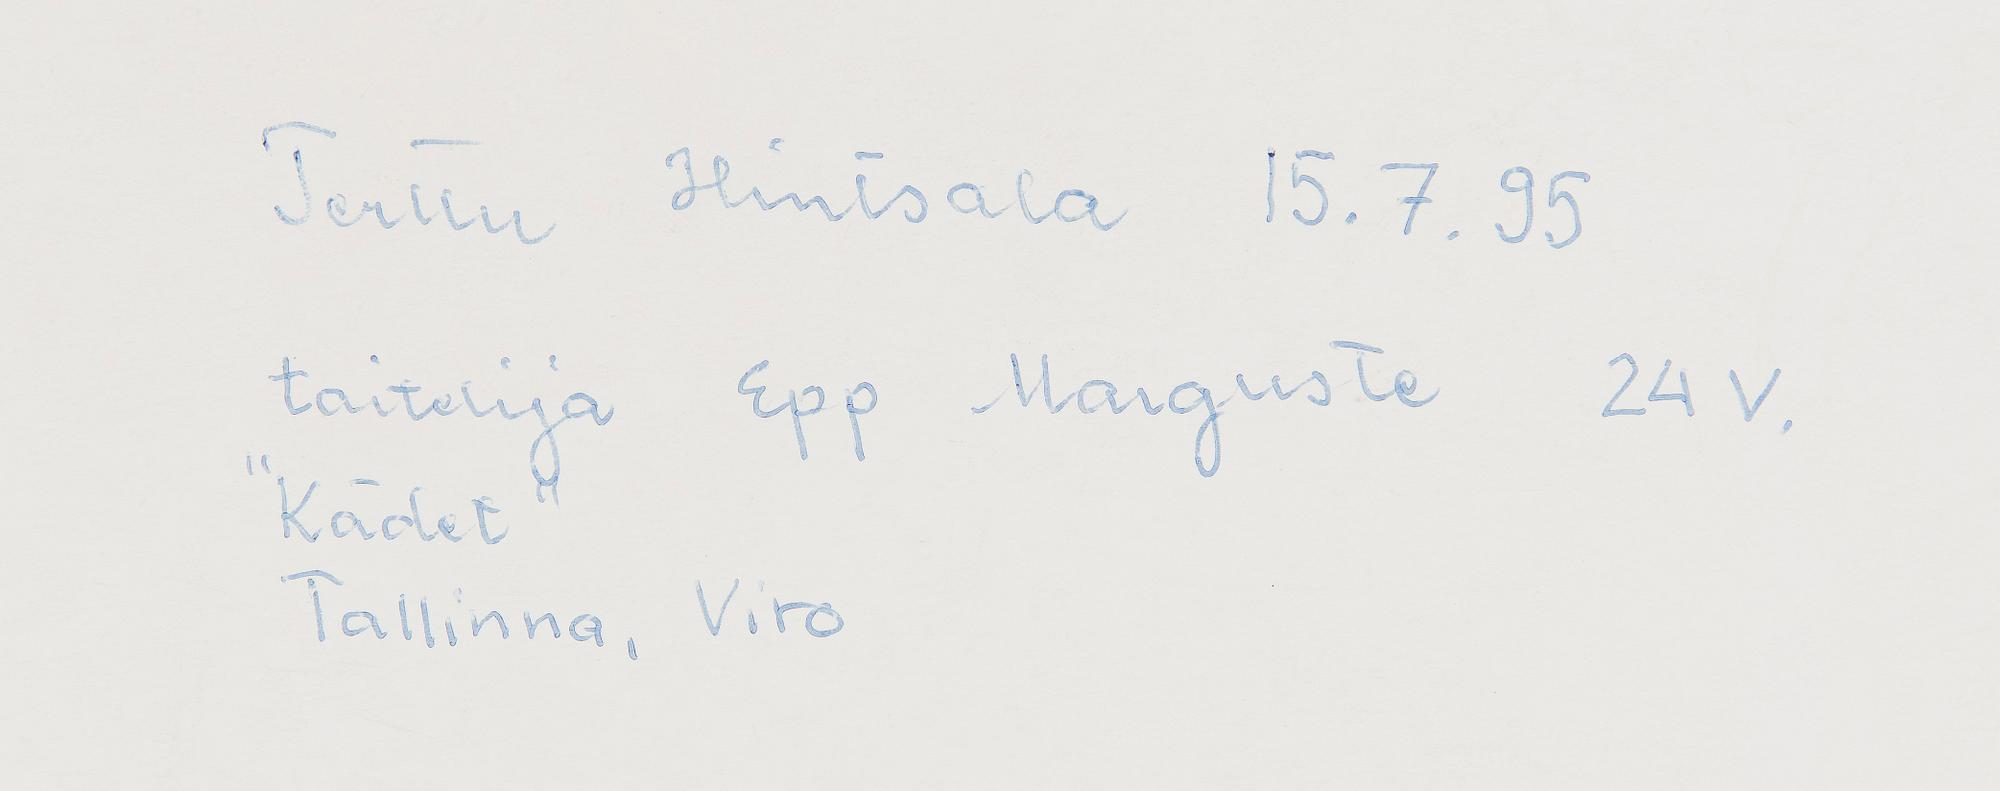 Terttu Hintsala 15.7.95
taiteilija Epp Marguste 24 v.
"Kädet"
Tallinna, Viro